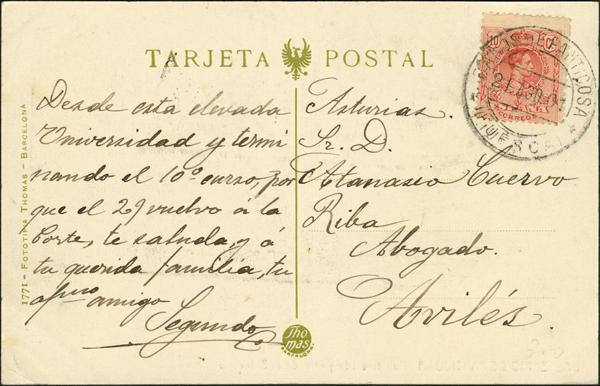 TARJETA POSTAL
Desde esta elevada
Universidad y termi
nando el 10º curso, por
que el 29 vuelvo á la
Corte, te saluda, y á
tu querida familia, tu
afmo amigo
Segundo
Asturias.
Sr. D.
Atanasio Cuervo
Riba
Abogado.
Avilés.
1771 - FOTOTIPIA THOMAS - BARCELONA
Thomas
BARCELONA
CORREOS
PANTICOSA
HUESCA